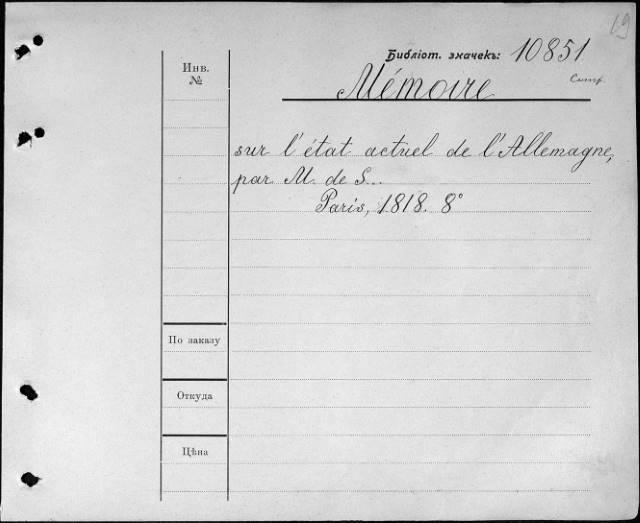 19
Библіот. значекъ: 10851
Инв.
№
Mémoire
sur l'état actuel de l'Allemagne,
par M. de S...
Paris, 1818. 8°
По заказу
Откуда
Цѣна